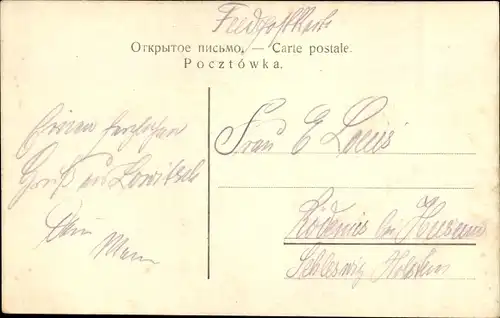 Feldpostkarte
Открытое письмо. — Carte postale.
Pocztówka.
Einen herzlichen
Gruß aus Lowitsch
Dein
Mann
Frau E Loeus
Rödemis bei Husum
Schleswig Holstein